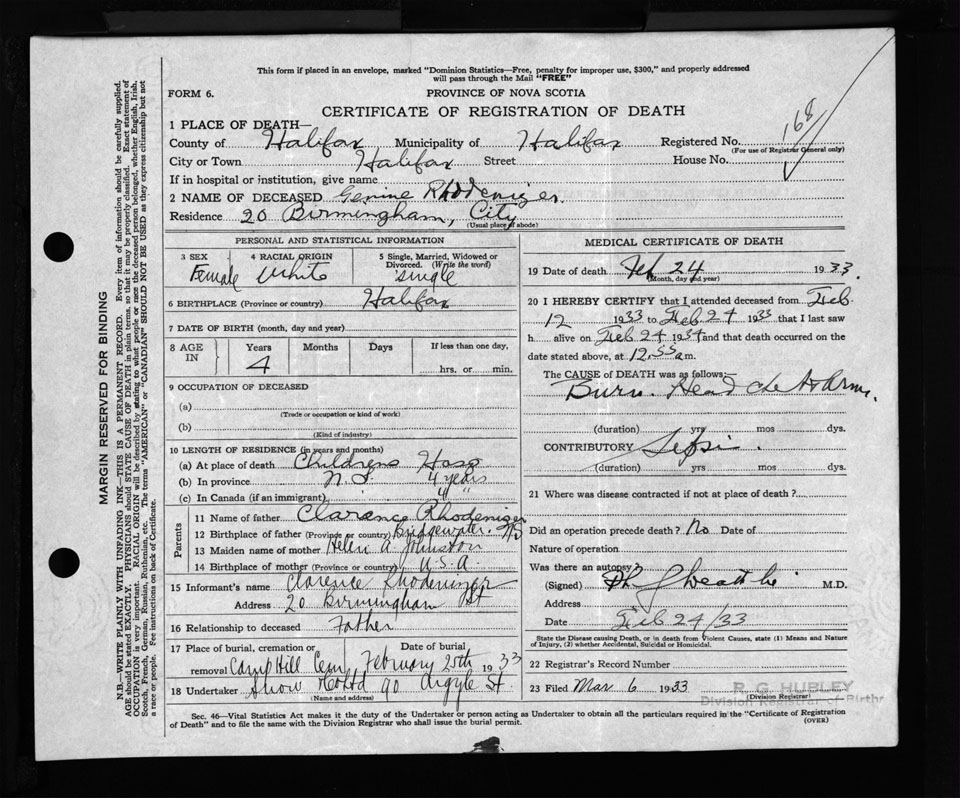 This form if placed in an envelope, marked "Dominion Statistics—Free, penalty for improper use, $300," and properly addressed
will pass through the Mail "FREE"
FORM 6.
PROVINCE OF NOVA SCOTIA
CERTIFICATE OF REGISTRATION OF DEATH
168
1 PLACE OF DEATH—
County of Halifax Municipality of Halifax Registered No.
(For use of Registrar General only)
City or Town Halifax Street House No.
If in hospital or institution, give name
2 NAME OF DECEASED Rhodeniger.
Residence 20 Birmingham, City
(Usual place of abode)
PERSONAL AND STATISTICAL INFORMATION
3 SEX 4 RACIAL ORIGIN 5 Single, Married, Widowed or
Divorced. (Write the word)
Female White Single
6 BIRTHPLACE (Province or country) Halifax
7 DATE OF BIRTH (month, day and year)
8 AGE IN Years Months Days If less than one day,
4 hrs. or min.
9 OCCUPATION OF DECEASED
(a)
(Trade or occupation or kind of work)
(b)
(Kind of industry)
10 LENGTH OF RESIDENCE (in years and months)
(a) At place of death Childrens Hosp
(b) In province N.S. 4 years
(c) In Canada (if an immigrant) " "
Parents
11 Name of father Clarance Rhodeniger
12 Birthplace of father (Province or country) Bridgewater NS
13 Maiden name of mother Helen A Johnston
14 Birthplace of mother (Province or country) U.S.A.
15 Informant's name Clarence Rhodeniger
Address 20 Birmingham St
16 Relationship to deceased Father
17 Place of burial, cremation or Date of burial
removal Camp Hill Cem February 25th 1933
18 Undertaker Snow & Co Ltd 90 Argyle St.
(Name and address)
MEDICAL CERTIFICATE OF DEATH
19 Date of death Feb 24 1933.
(Month, day and year)
20 I HEREBY CERTIFY that I attended deceased from Feb.
12 1933 to Feb 24 1933 that I last saw
h alive on Feb 24 1934 and that death occurred on the
date stated above, at 12.55 a.m.
The CAUSE of DEATH was as follows:
Burn. Head Arms.
(duration) yrs mos dys.
CONTRIBUTORY Sepsis.
(duration) yrs mos dys.
21 Where was disease contracted if not at place of death?
Did an operation precede death? No Date of
Nature of operation
Was there an autopsy?
(Signed) M.D.
Address
Date Feb 24/33
State the Disease causing Death, or in death from Violent Causes, state (1) Means and Nature
of Injury, (2) whether Accidental, Suicidal or Homicidal.
22 Registrar's Record Number
23 Filed Mar 6 1933 R. G. HUBLEY
Division Registrar of Births
(Division Registrar)
Sec. 46—Vital Statistics Act makes it the duty of the Undertaker or person acting as Undertaker to obtain all the particulars required in the "Certificate of Registration
of Death" and to file the same with the Division Registrar who shall issue the burial permit. (OVER)
MARGIN RESERVED FOR BINDING
N.B.—WRITE PLAINLY WITH UNFADING INK—THIS IS A PERMANENT RECORD. Every item of information should be carefully supplied.
AGE should be stated EXACTLY. PHYSICIANS should STATE CAUSE OF DEATH in plain terms, so that it may be properly classified. Exact statement of
OCCUPATION is very important. RACIAL ORIGIN will be described by stating to what people or race the deceased person belonged, whether English, Irish,
Scotch, French, German, Russian, Ruthenian, etc. The terms "AMERICAN" or "CANADIAN" SHOULD NOT BE USED as they express citizenship but not
a race or people. See instructions on back of Certificate.